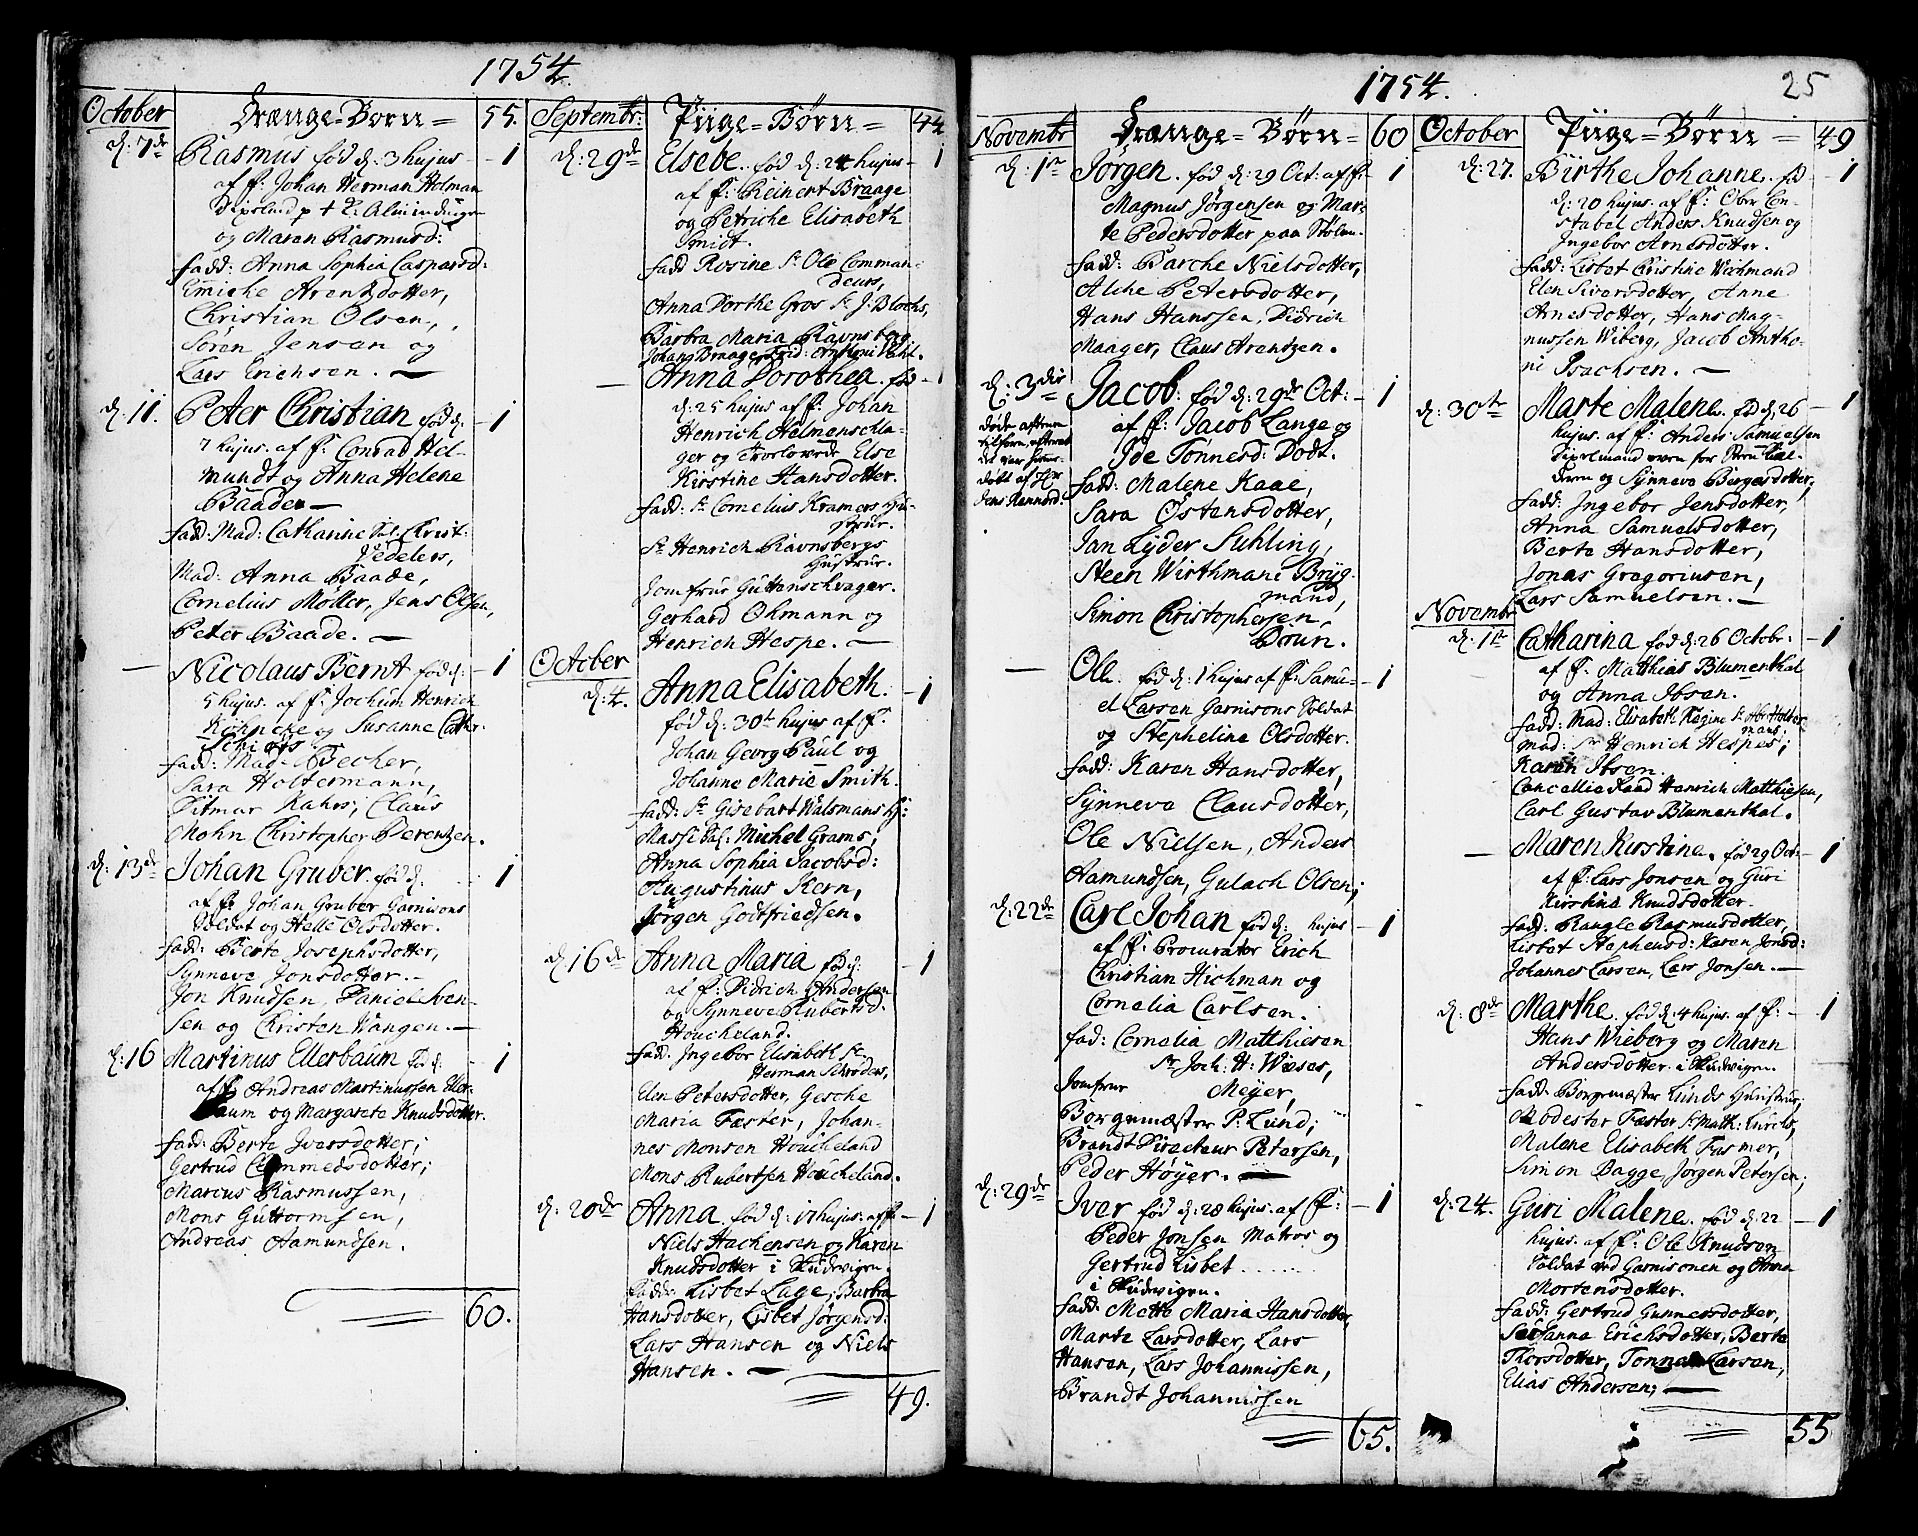 1754.
October
Drænge-Børn =
55.
d: 7de
Rasmus fød d: 3 hujus - 1
af F: Johan Herman Holman
og Maren Rasmusd:
fadd: Anna Sophia Caspersd:
Emiche Arentzdotter,
Christian Olsen,
Søren Jensen og
Lars Erichsen. —
d: 11.
Peter Christian fød d. - 1
7 hujus. af F: Conrad Hel-
mundt og Anna Helene
Baade. —
fadd: Mad: Catharine Sal. Christ:
Fedelers,
Mad: Anna Baade,
Cornelius Møller, Jens Olsen,
Peter Baade. —
— Nicolaus Bernt fød d: - 1
5 hujus. af F: Jochum Henrich
og Susanne Cathr.
fadd: Mad: Becher,
Sara Holtermann,
Ditmar Kahrs, Claus
Mohn Christopher Berentzen.
d: 13de
Johan Gruber. fød d. - 1
af F: Johan Gruber Garnisons
Soldat og Helle Olsdotter.
fadd: Berte Josephsdotter,
Synneve Jonsdotter. —
Jon Knudsen, Daniel Sven-
sen og Christen Wangen. —
d: 16
Martinus Ellerbaum fød d: - 1
af F. Andreas Martinussen Eller-
baum og Margarete Knudsdotter.
fadd: Berte Iversdotter;
Gertrud Clemmedsdotter;
Marcus Rasmussen,
Mons Guttormsen,
Andreas Aamundsen.
60.
Septembr:
Piige-Børn =
44
d: 29de
Elsebe. fød d: 24 hujus - 1
af F: Reinert Braage
og Petriche Elisabeth
Smidt.
fadd Rosine Sr Ole Comman-
deurs,
Anna Dorthe Gros Sr J: Blochs,
Barbra Maria Ravnsberg
Johan Braage, Frid: Anthoni Wahl.
— Anna Dorothea. fød - 1
d: 25 hujus af F: Johan
Henrich Helmenschla-
ger og Trorlovede Else
Kirstine Hansdotter.
fadd: Sr Cornelius Kramers Hu-
strue.
Sr Henrich Ravnsbergs
Hustrue.
Jomfrue Guttenschvager.
Gerhard Ohmann og
Henrich Hespe. —
October
d: 4.
Anna Elisabeth. - 1
fød d: 30te hujus af F.
Johan Georg Paul og
Johanne Marie Smith.
fadd: Sr Gisebart Walsmans Hs:
Massi Sal: Michel Grams,
Anna Sophia Jacobsd:
Augustinus Kern,
Jørgen Godtfriedsen.
d: 16de
Anna Maria fød d: - 1
af F: Didrich Andersen
og Synneve Rubertsd.
Houcheland.
fadd: Ingebor Elisabeth Sr.
Herman Schrøders,
Elen Petersdotter, Gesche
Maria Fæster, Johan-
nes Monsen Houcheland
Mons Rubertsen Houcheland.
d: 20de
Anna. fød d: 17 hujus. af F. - 1
Niels Hachensen og Karen
Knudsdotter i Skudevigen.
fadd: Lisbet Lage, Barbra
Hansdotter, Lisbet Jørgensd:
Lars Hansen og Niels
Hansen. —
49.
1754.
25
Novembr
Drænge-Børn-
60
d: 1te
Jørgen. fød d: 29 Oct: af F. - 1
Magnus Jørgensen og Mar-
te Pedersdotter paa Stølen.
fadd: Barche Nielsdotter,
Alche Petersdotter,
Hans Hanssen, Didrich
Manger, Claus Arentzen.
d: 3die
døde aftenen
tilforn, efterat
det var hjemme-
døbt af Hr
Jens Rennord.
Jacob. fød d: 29de Oct: - 1
af F: Jacob Lange og
Ide Tønnesd: Dodt.
fadd: Malene Kaae,
Sara Ostensdotter,
Jan Lyder Suhling,
Steen Wirthmand Bryg-
mand,
Simon Christophersen,
Bruun.
— Ole. fød d: 1 hujus af F: Samu- - 1
el Larsen Garnisons Soldat
og Stepheline Olsdotter.
fadd: Karen Hansdotter,
Synneva Clausdotter,
Ole Nielsen, Anders
Aamundsen, Gulach Olsen;
d: 22de
Carl Johan fød d: hujus - 1
af F: Procurator Erich
Christian Hichman og
Cornelia Carlsen.
fad: Cornelia Matthiesen
Sr Joch: H: Wieses,
Jomfrue Meyer,
Borgemæster P: Lund;
Brandt Directeur Petersen,
Peder Høyer. —
d: 29de
Iver fød d: 28 hujus. af F: - 1
Peder Jonsen Matros og
Gertrud Lisbet ......
i Skudevigen.
fadd: Mette Maria Hansdotter
Marte Larsdotter, Lars
Hansen, Lars Johannissen,
Brandt Johannissen
65.
October
Piige-Børn =
49
d: 27.
Birthe Johanne. fød - 1
d: 20 hujus. af F: Ober Con-
stabel Anders Knudsen og
Ingebor Arnesdotter.
fadd: Lisbet Christine Wirthmand
Elen Siversdotter, Anne
Arnesdotter, Hans Mag-
nussen Wiberg, Jacob Antho-
ni Isachsen. —
d: 30te
Marte Malene. fød d. 26 - 1
hujus. af F: Anders Samuelsen
og Synneve Bergesdotter,
fadd: Ingebor Jensdotter,
Anna Samuelsdotter,
Berte Hansdotter,
Jonas Gregoriusen,
Lars Samuelsen. —
Novembr
d: 1te
Catharina fød d: 26 Octobr: - 1
af F: Matthias Blumenthal
og Anna Ibsen.
fadd: Mad: Elisabeth Regine Sr Abr Holter-
mans,
Mad: Sr Henrich Hespes;
Karen Ibsen.
Cancellie Raad Henrich Matthiesen,
Carl Gustav Blumenthal.
— Maren Kirstine. fød 29 Oct: - 1
af F: Lars Jonsen og Guri
Kirstine Knudsdotter.
fadd: Rangle Rasmusdotter,
Lisbet Stephensd: Karen Jonsd:
Johannes Larsen, Lars Jonsen. —
d: 8de
Marthe. fød d: 4 hujus. af F: - 1
Hans Wieberg og Maren
Andersdotter i Skudevigen.
fadd: Borgemæster Lunds Hustrue;
Modester Fæster Sr Math: Lurels,
Malene Elisabeth Fasmer,
Simon Dagge, Jørgen Petersen;
d: 24.
Guri Malene. fød d. 22 - 1
hujus. af F: Ole Knudsen
Soldat ved Garnisonen og Anna
Mortensdotter.
fadd: Gertrud Gunnersdotter,
Susanna Erichsdotter, Berte
Thorsdotter, Tonnas Larsen,
Elias Andersen; —
55